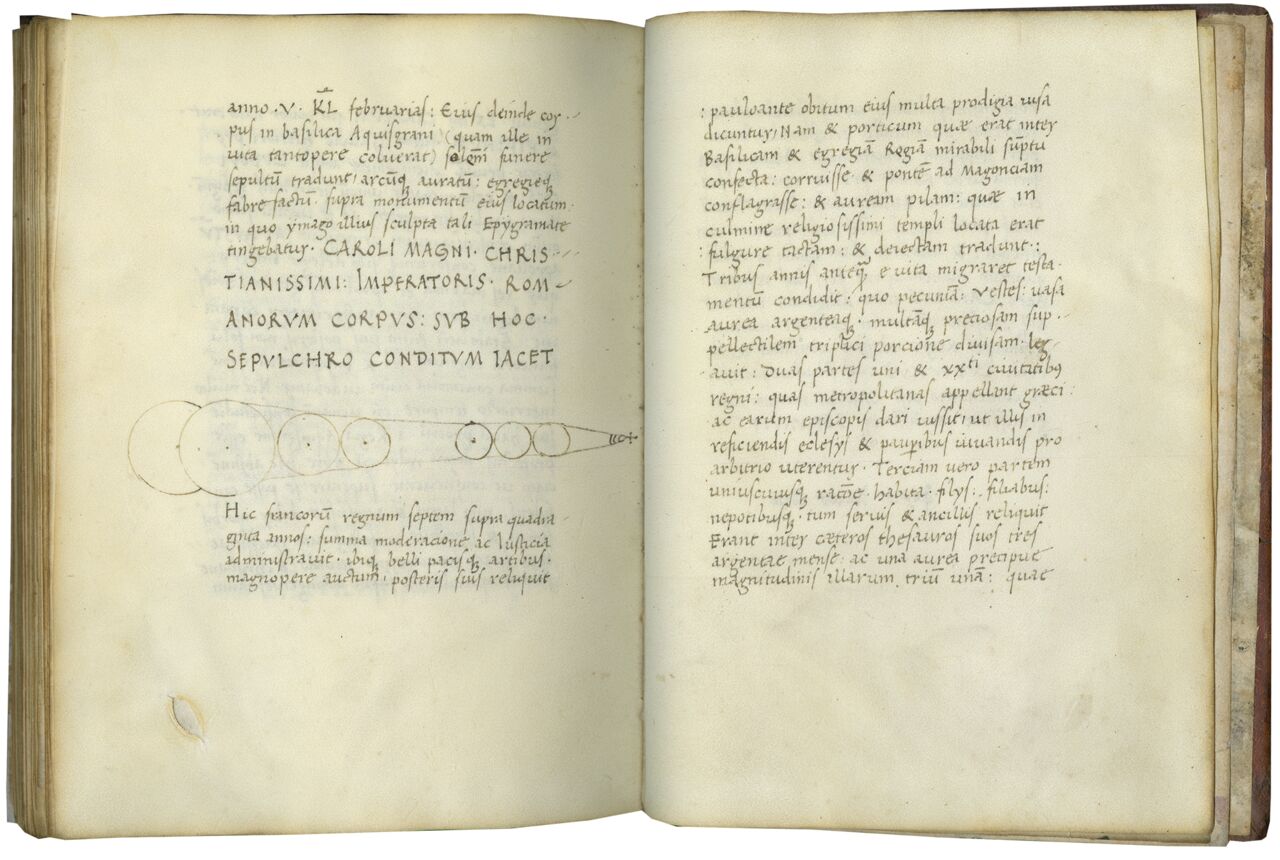 anno · V · KL̅ februarias : Eius deinde cor-
pus in basilica Aquisgrani (quam ille in
vita tantopere coluerat) solo͞ni funere
sepultū tradunt, arcūq, auratū : egregieq,
fabre factū supra monumentū eius locatum ·
in quo ymago illius sculpta tali Epygramate
tingebatur · CAROLI MAGNI · CHRIS-
TIANISSIMI : IMPERATORIS · ROM-
ANORVM CORPVS : SVB HOC ·
SEPVLCHRO CONDITVM IACET
Hic francorū regnum septem supra quadra-
ginta annos : summa moderacione ac Iusticia
administravit · ibiq, belli pacisq, artibus ·
magnopere auctum, posteris suis reliquit
: pauloante obitum eius multa prodigia visa
dicuntur, Nam & porticum quae erat inter
Basilicam & egregiā Regiā mirabili sūptu
confecta : corruisse & pontē ad Magonciam
conflagrasse : & auream pilam : quae in
culmine religiosissimi templi locata erat
: fulgure tactam : & deiectam tradunt · :
Tribus annis anteq, e vita migraret testa-
mentū condidit : quo pecuniā : vestes : vasa
aurea argenteaq, · multāq, preciosam sup-
pellectilem triplici porcione divisam · leg-
avit : Duas partes uni & xxti civitatibꝫ
regni : quas metropolitanas appellant græci :
ac earum episcopis dari iussit, ut illis in
reficiendis eclesys & paup̱ibus iuvandis pro
arbitrio uterentur · Terciam vero partem
uniuscuiusq, racōe habita · filys : filiabus :
nepotibusq, · tum servis & ancillis reliquit
Erant inter cæteros thesauros suos tres
argentae mense : ac una aurea precipue
magnitudinis illarum triū unā : quae